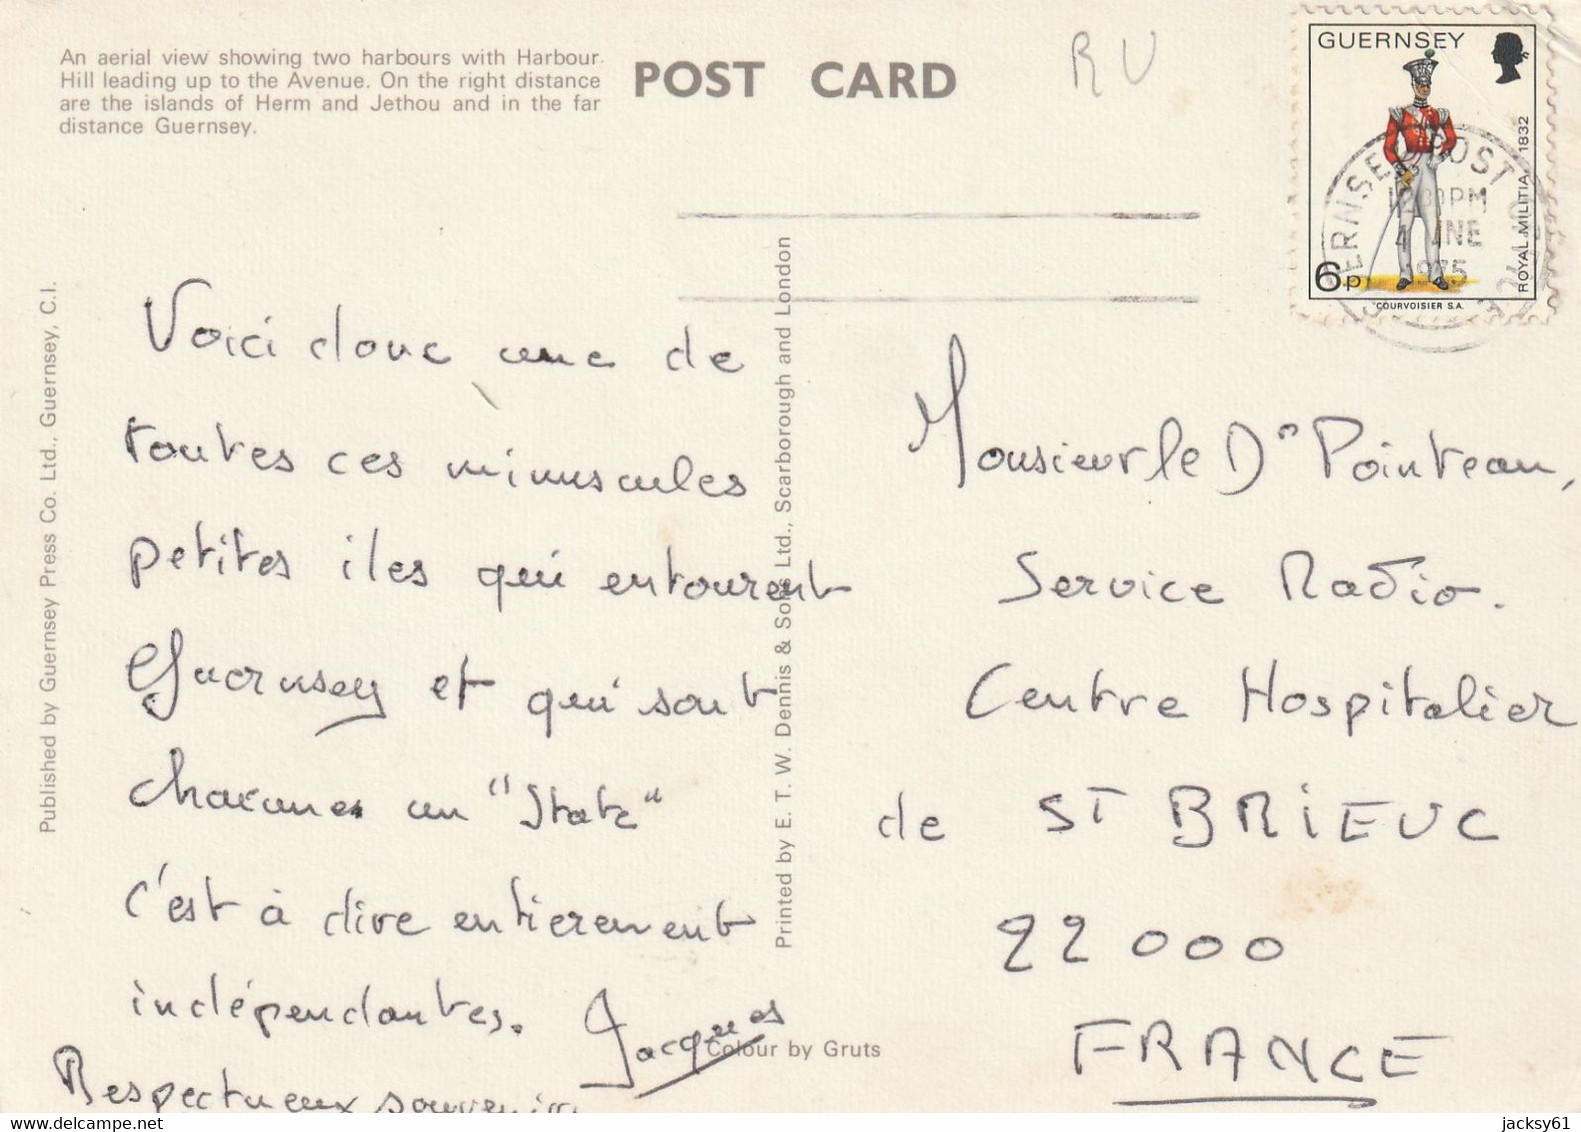 An aerial view showing two harbours with Harbour
Hill leading up to the Avenue. On the right distance
are the islands of Herm and Jethou and in the far
distance Guernsey.
POST CARD
RU
GUERNSEY
ROYAL MILITIA, 1832
6p
COURVOISIER S.A.
GUERNSEY POST OFFICE
PM
4 JNE
1975
Published by Guernsey Press Co. Ltd., Guernsey, C.I.
Printed by E. T. W. Dennis & Sons Ltd., Scarborough and London
Voici donc une de
toutes ces minuscules
petites iles qui entourent
Guernsey et qui sont
chacunes un "State"
c'est à dire entierement
indépendantes.
Jacques
Respectueux souvenirs
Colour by Gruts
Monsieur le Dr Pointeau,
Service Radio.
Centre Hospitalier
de ST BRIEUC
22000
FRANCE
jacksy61